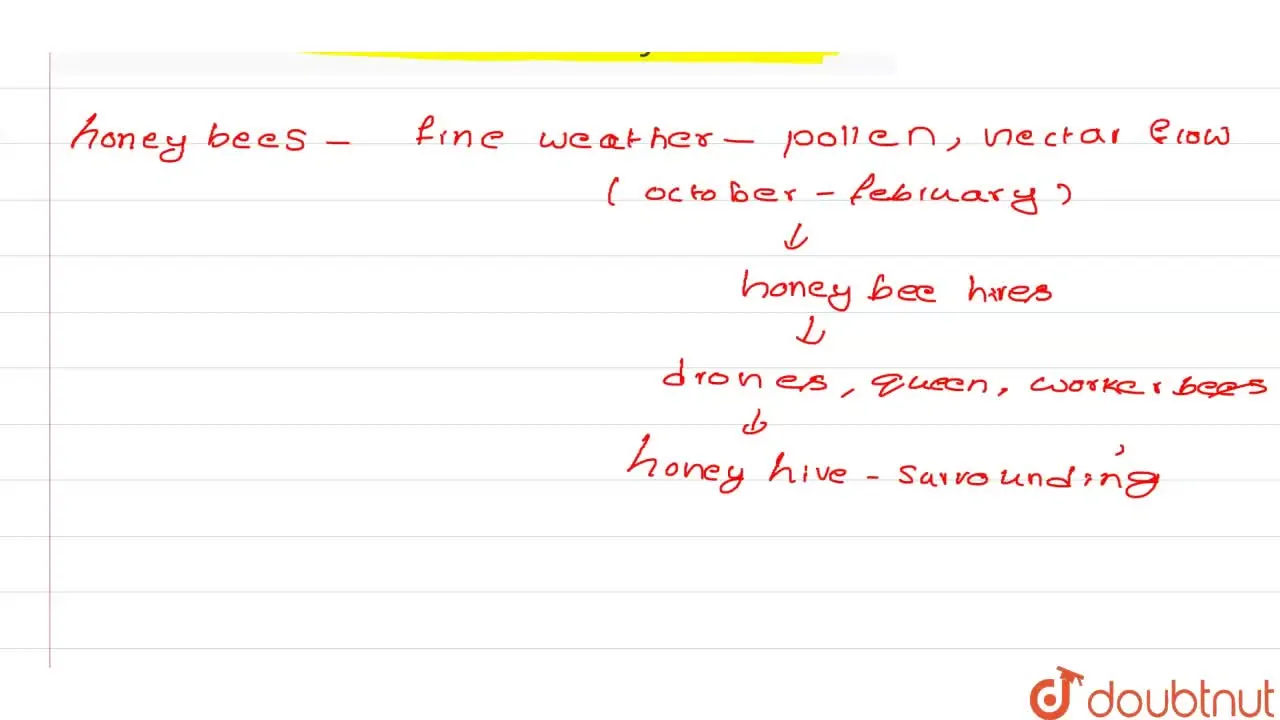 honey bees - fine weather - pollen, nectar flow
(october - february)
↓
honey bee hives
↓
drones, queen, worker bees
↓
honey hive - surrounding
doubtnut